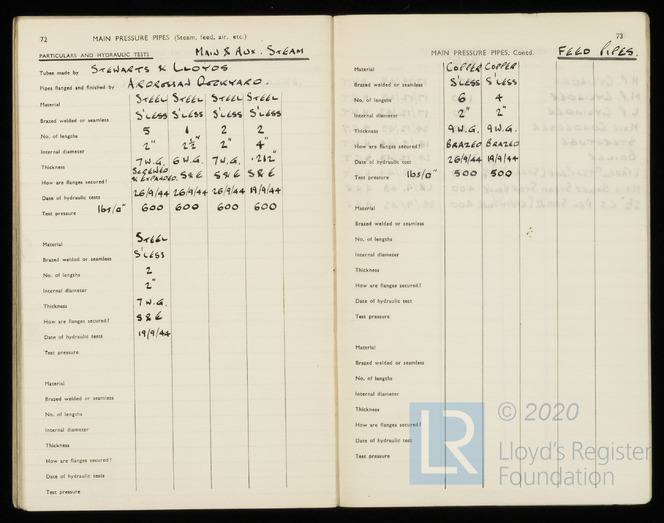 72 MAIN PRESSURE PIPES (Steam, feed, air, etc.)
PARTICULARS AND HYDRAULIC TESTS MAIN & AUX. STEAM
Tubes made by STEWARTS & LLOYDS
Pipes flanged and finished by ARDROSSAN DOCKYARD.
Material STEEL STEEL STEEL STEEL
Brazed welded or seamless S'LESS S'LESS S'LESS S'LESS
No. of lengths 5 1 2 2
Internal diameter 2" 2½" 2" 4"
Thickness 7 W.G. 6 W.G. 7 W.G. .212"
How are flanges secured? SCREWED & EXPANDED. S&E S&E S&E
Date of hydraulic tests 26/9/44 26/9/44 26/9/44 19/9/44
Test pressure lbs/□" 600 600 600 600
Material STEEL
Brazed welded or seamless S'LESS
No. of lengths 2
Internal diameter 2"
Thickness 7 W.G.
How are flanges secured? S&E
Date of hydraulic tests 19/9/44
Test pressure
Material
Brazed welded or seamless
No. of lengths
Internal diameter
Thickness
How are flanges secured?
Date of hydraulic tests
Test pressure
73
MAIN PRESSURE PIPES, Contd. FEED PIPES.
Material COPPER COPPER
Brazed welded or seamless S'LESS S'LESS
No. of lengths 6 4
Internal diameter 2" 2"
Thickness 9 W.G. 9 W.G.
How are flanges secured? BRAZED BRAZED
Date of hydraulic tests 26/9/44 19/9/44
Test pressure lbs/□" 500 500
Material
Brazed welded or seamless
No. of lengths
Internal diameter
Thickness
How are flanges secured?
Date of hydraulic test
Test pressure
Material
Brazed welded or seamless
No. of lengths
Internal diameter
Thickness
How are flanges secured?
Date of hydraulic test
Test pressure
LR © 2020
Lloyd's Register
Foundation